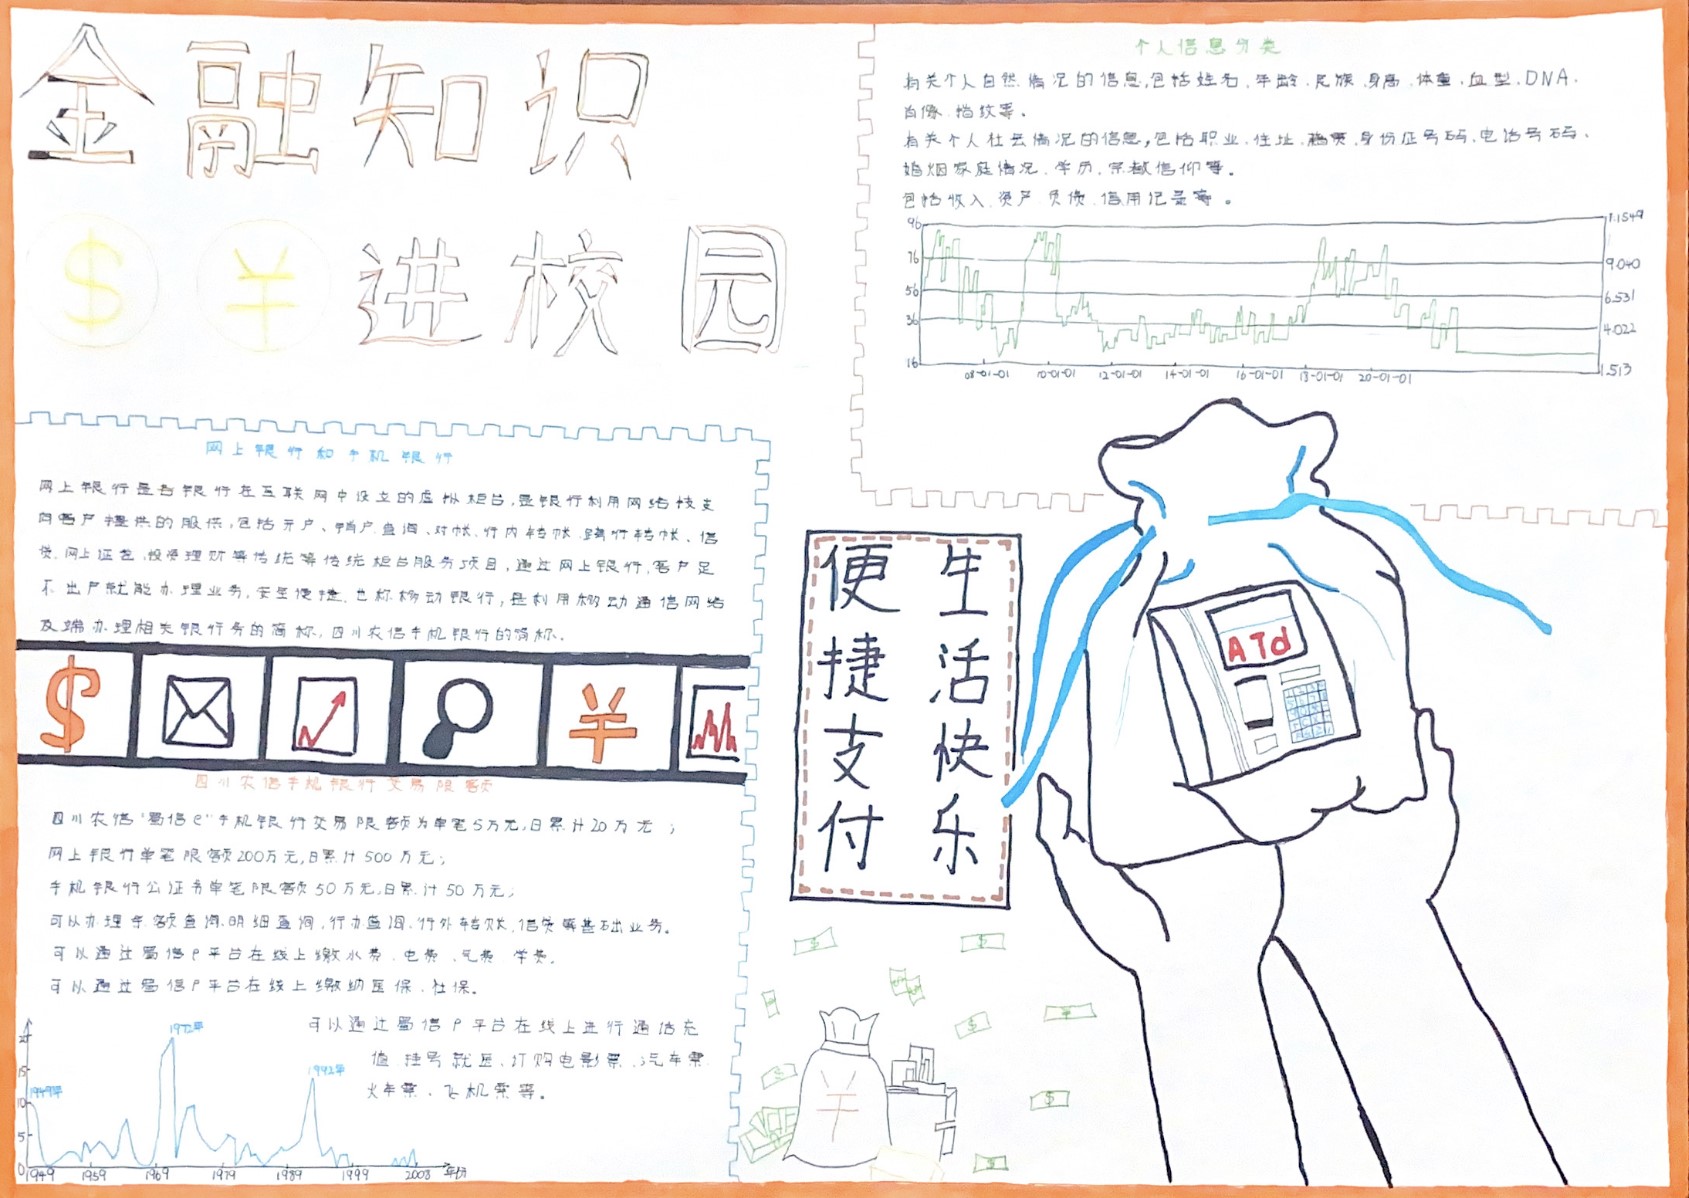 金融知识
$ ¥ 进校园
个人信息分类
有关个人自然情况的信息,包括姓名、年龄、民族、身高、体重、血型、DNA、
肖像、指纹等。
有关个人社会情况的信息,包括职业、住址、籍贯、身份证号码、电话号码、
婚姻家庭情况、学历、宗教信仰等。
包括收入、资产、负债、信用记录等。
96
76
56
36
16
1.1549
9.040
6.531
4.022
1.513
08-01-01 10-01-01 12-01-01 14-01-01 16-01-01 18-01-01 20-01-01
网上银行和手机银行
网上银行是各银行在互联网中设立的虚拟柜台,是银行利用网络技支
向客户提供的服供,包括开户、销户、查询、对帐、行内转帐、跨行转帐、信
贷、网上证卷、投资理财等传统等传统柜台服务项目,通过网上银行,客户足
不出户就能办理业务,安全便捷,也称移动银行,是利用移动通信网络
及端办理相关银行务的简称,四川农信手机银行的简称。
$
¥
四川农信手机银行交易限额
四川农信"蜀信e"手机银行交易限额为单笔5万元,日累计20万元;
网上银行单笔限额200万元,日累计500万元;
手机银行公证书单笔限额50万元,日累计50万元;
可以办理余额查询、明细查询、行办查询、行外转账、信贷等基础业务。
可以通过蜀信e平台在线上缴水费、电费、气费、学费。
可以通过蜀信e平台在线上缴纳医保、社保。
可以通过蜀信e平台在线上进行通信充
值、挂号就医、订购电影票、汽车票、
火车票、飞机票等。
1949年
1972年
1992年
15
10
5
0
1949 1959 1969 1979 1989 1999 2008 年份
生活快乐
便捷支付
ATd
¥